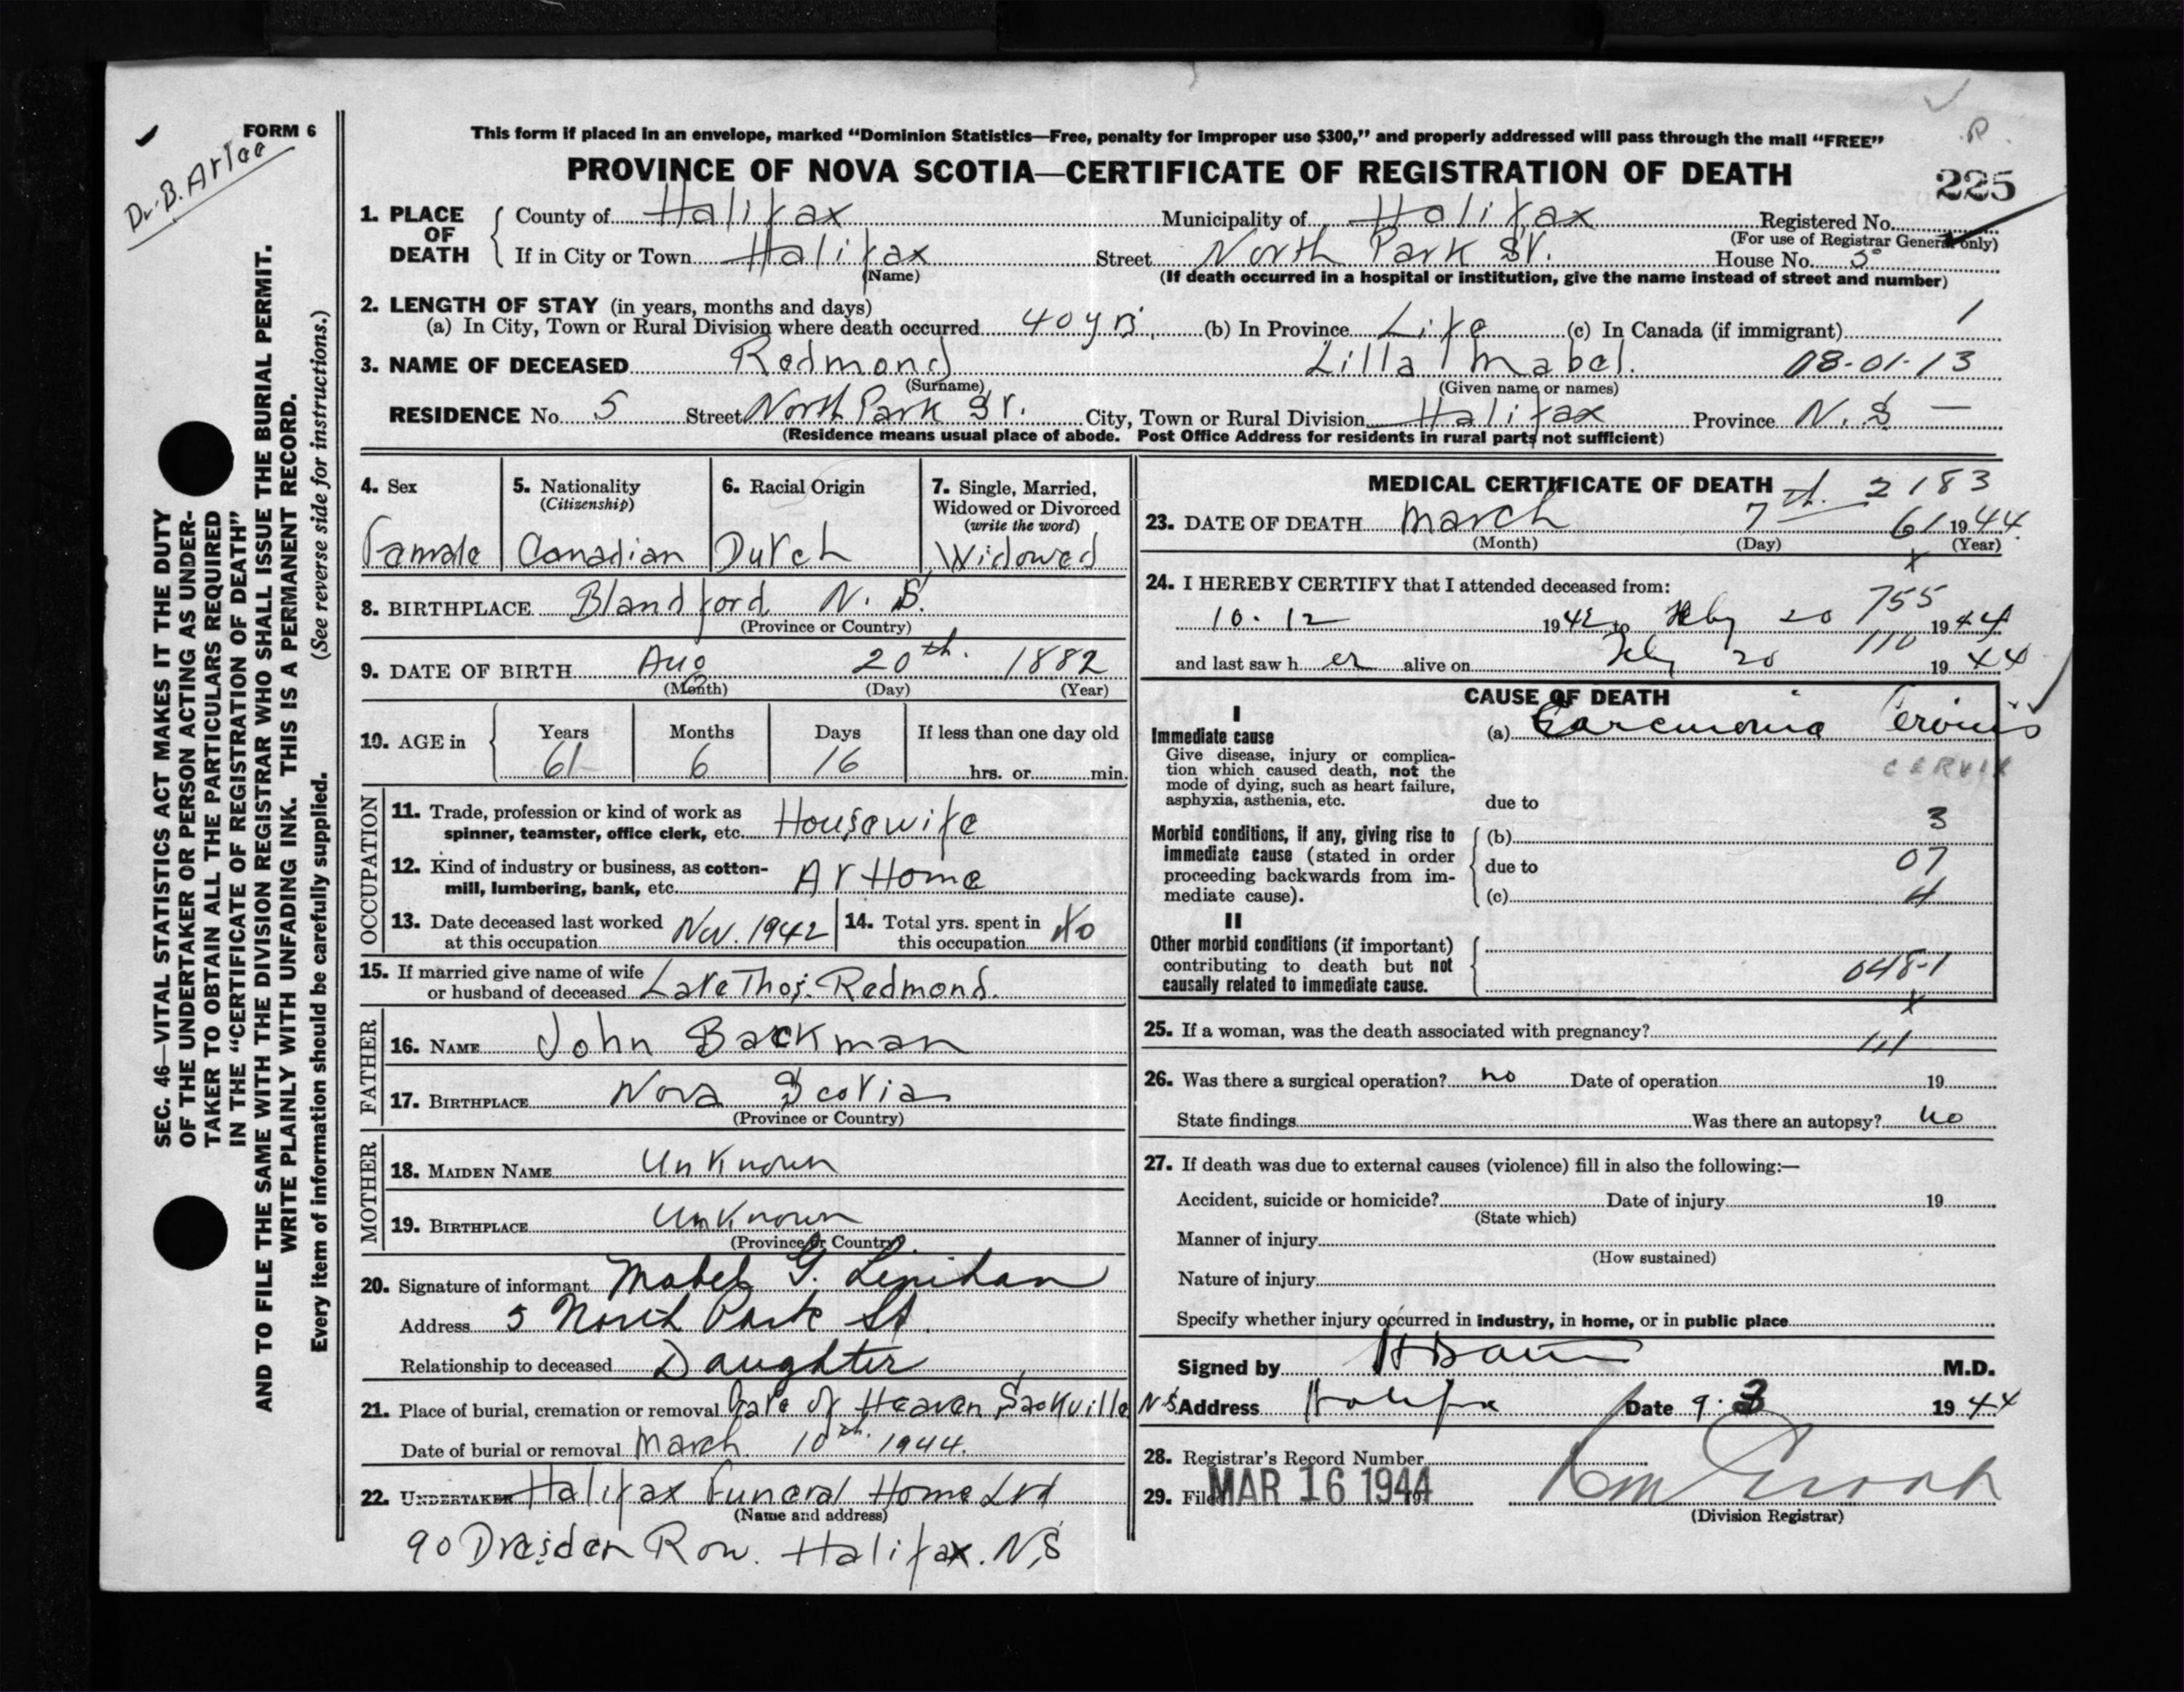 FORM 6
Dr. B. Atlee
This form if placed in an envelope, marked "Dominion Statistics—Free, penalty for improper use $300," and properly addressed will pass through the mail "FREE"
PROVINCE OF NOVA SCOTIA—CERTIFICATE OF REGISTRATION OF DEATH
R
225
1. PLACE OF DEATH County of Halifax Municipality of Halifax Registered No.
(For use of Registrar General only)
If in City or Town Halifax Street North Park St. House No. 5
(Name) (If death occurred in a hospital or institution, give the name instead of street and number)
2. LENGTH OF STAY (in years, months and days)
(a) In City, Town or Rural Division where death occurred 40 yrs. (b) In Province Life (c) In Canada (if immigrant) 1
3. NAME OF DECEASED Redmond Lilla Mabel. 08-01-13
(Surname) (Given name or names)
RESIDENCE No. 5 Street North Park St. City, Town or Rural Division Halifax Province N. S —
(Residence means usual place of abode. Post Office Address for residents in rural parts not sufficient)
SEC. 46—VITAL STATISTICS ACT MAKES IT THE DUTY
OF THE UNDERTAKER OR PERSON ACTING AS UNDER-
TAKER TO OBTAIN ALL THE PARTICULARS REQUIRED
IN THE "CERTIFICATE OF REGISTRATION OF DEATH"
AND TO FILE THE SAME WITH THE DIVISION REGISTRAR WHO SHALL ISSUE THE BURIAL PERMIT.
WRITE PLAINLY WITH UNFADING INK. THIS IS A PERMANENT RECORD.
Every item of information should be carefully supplied. (See reverse side for instructions.)
4. Sex 5. Nationality 6. Racial Origin 7. Single, Married,
(Citizenship) Widowed or Divorced
(write the word)
Female Canadian Dutch Widowed
8. BIRTHPLACE Blandford N. S.
(Province or Country)
9. DATE OF BIRTH Aug 20th. 1882
(Month) (Day) (Year)
10. AGE in Years Months Days If less than one day old
61 6 16 hrs. or min.
OCCUPATION
11. Trade, profession or kind of work as
spinner, teamster, office clerk, etc. Housewife
12. Kind of industry or business, as cotton-
mill, lumbering, bank, etc. At Home
13. Date deceased last worked
at this occupation Nov. 1942
14. Total yrs. spent in
this occupation 40
15. If married give name of wife
or husband of deceased Late Thos. Redmond.
FATHER
16. NAME John Backman
17. BIRTHPLACE Nova Scotia
(Province or Country)
MOTHER
18. MAIDEN NAME Unknown
19. BIRTHPLACE Unknown
(Province or Country)
20. Signature of informant Mabel G. Lenihan
Address 5 North Park St.
Relationship to deceased Daughter
21. Place of burial, cremation or removal Gate of Heaven, Sackville N.S.
Date of burial or removal March 10th. 1944.
22. UNDERTAKER Halifax Funeral Home Ltd
(Name and address)
90 Dresden Row. Halifax. N.S
MEDICAL CERTIFICATE OF DEATH 2183
23. DATE OF DEATH March 7th. 61 1944
(Month) (Day) (Year)
x
24. I HEREBY CERTIFY that I attended deceased from:
755
10. 12 1942 to Feby 20 1944
110
and last saw her alive on Feby 20 1944
CAUSE OF DEATH
I
Immediate cause (a) Carcinoma Cervix
Give disease, injury or complica-
tion which caused death, not the
mode of dying, such as heart failure,
asphyxia, asthenia, etc.
CERVIX
due to
3
Morbid conditions, if any, giving rise to (b)
immediate cause (stated in order
proceeding backwards from im-
mediate cause).
due to 07
(c) 4
II
Other morbid conditions (if important)
contributing to death but not
causally related to immediate cause.
048-1
x
25. If a woman, was the death associated with pregnancy?
111
26. Was there a surgical operation? no Date of operation 19
State findings Was there an autopsy? no
27. If death was due to external causes (violence) fill in also the following:—
Accident, suicide or homicide? Date of injury 19
(State which)
Manner of injury
(How sustained)
Nature of injury
Specify whether injury occurred in industry, in home, or in public place
Signed by M.D.
Address Halifax Date 9. 3 1944
28. Registrar's Record Number
29. Filed MAR 16 1944
(Division Registrar)